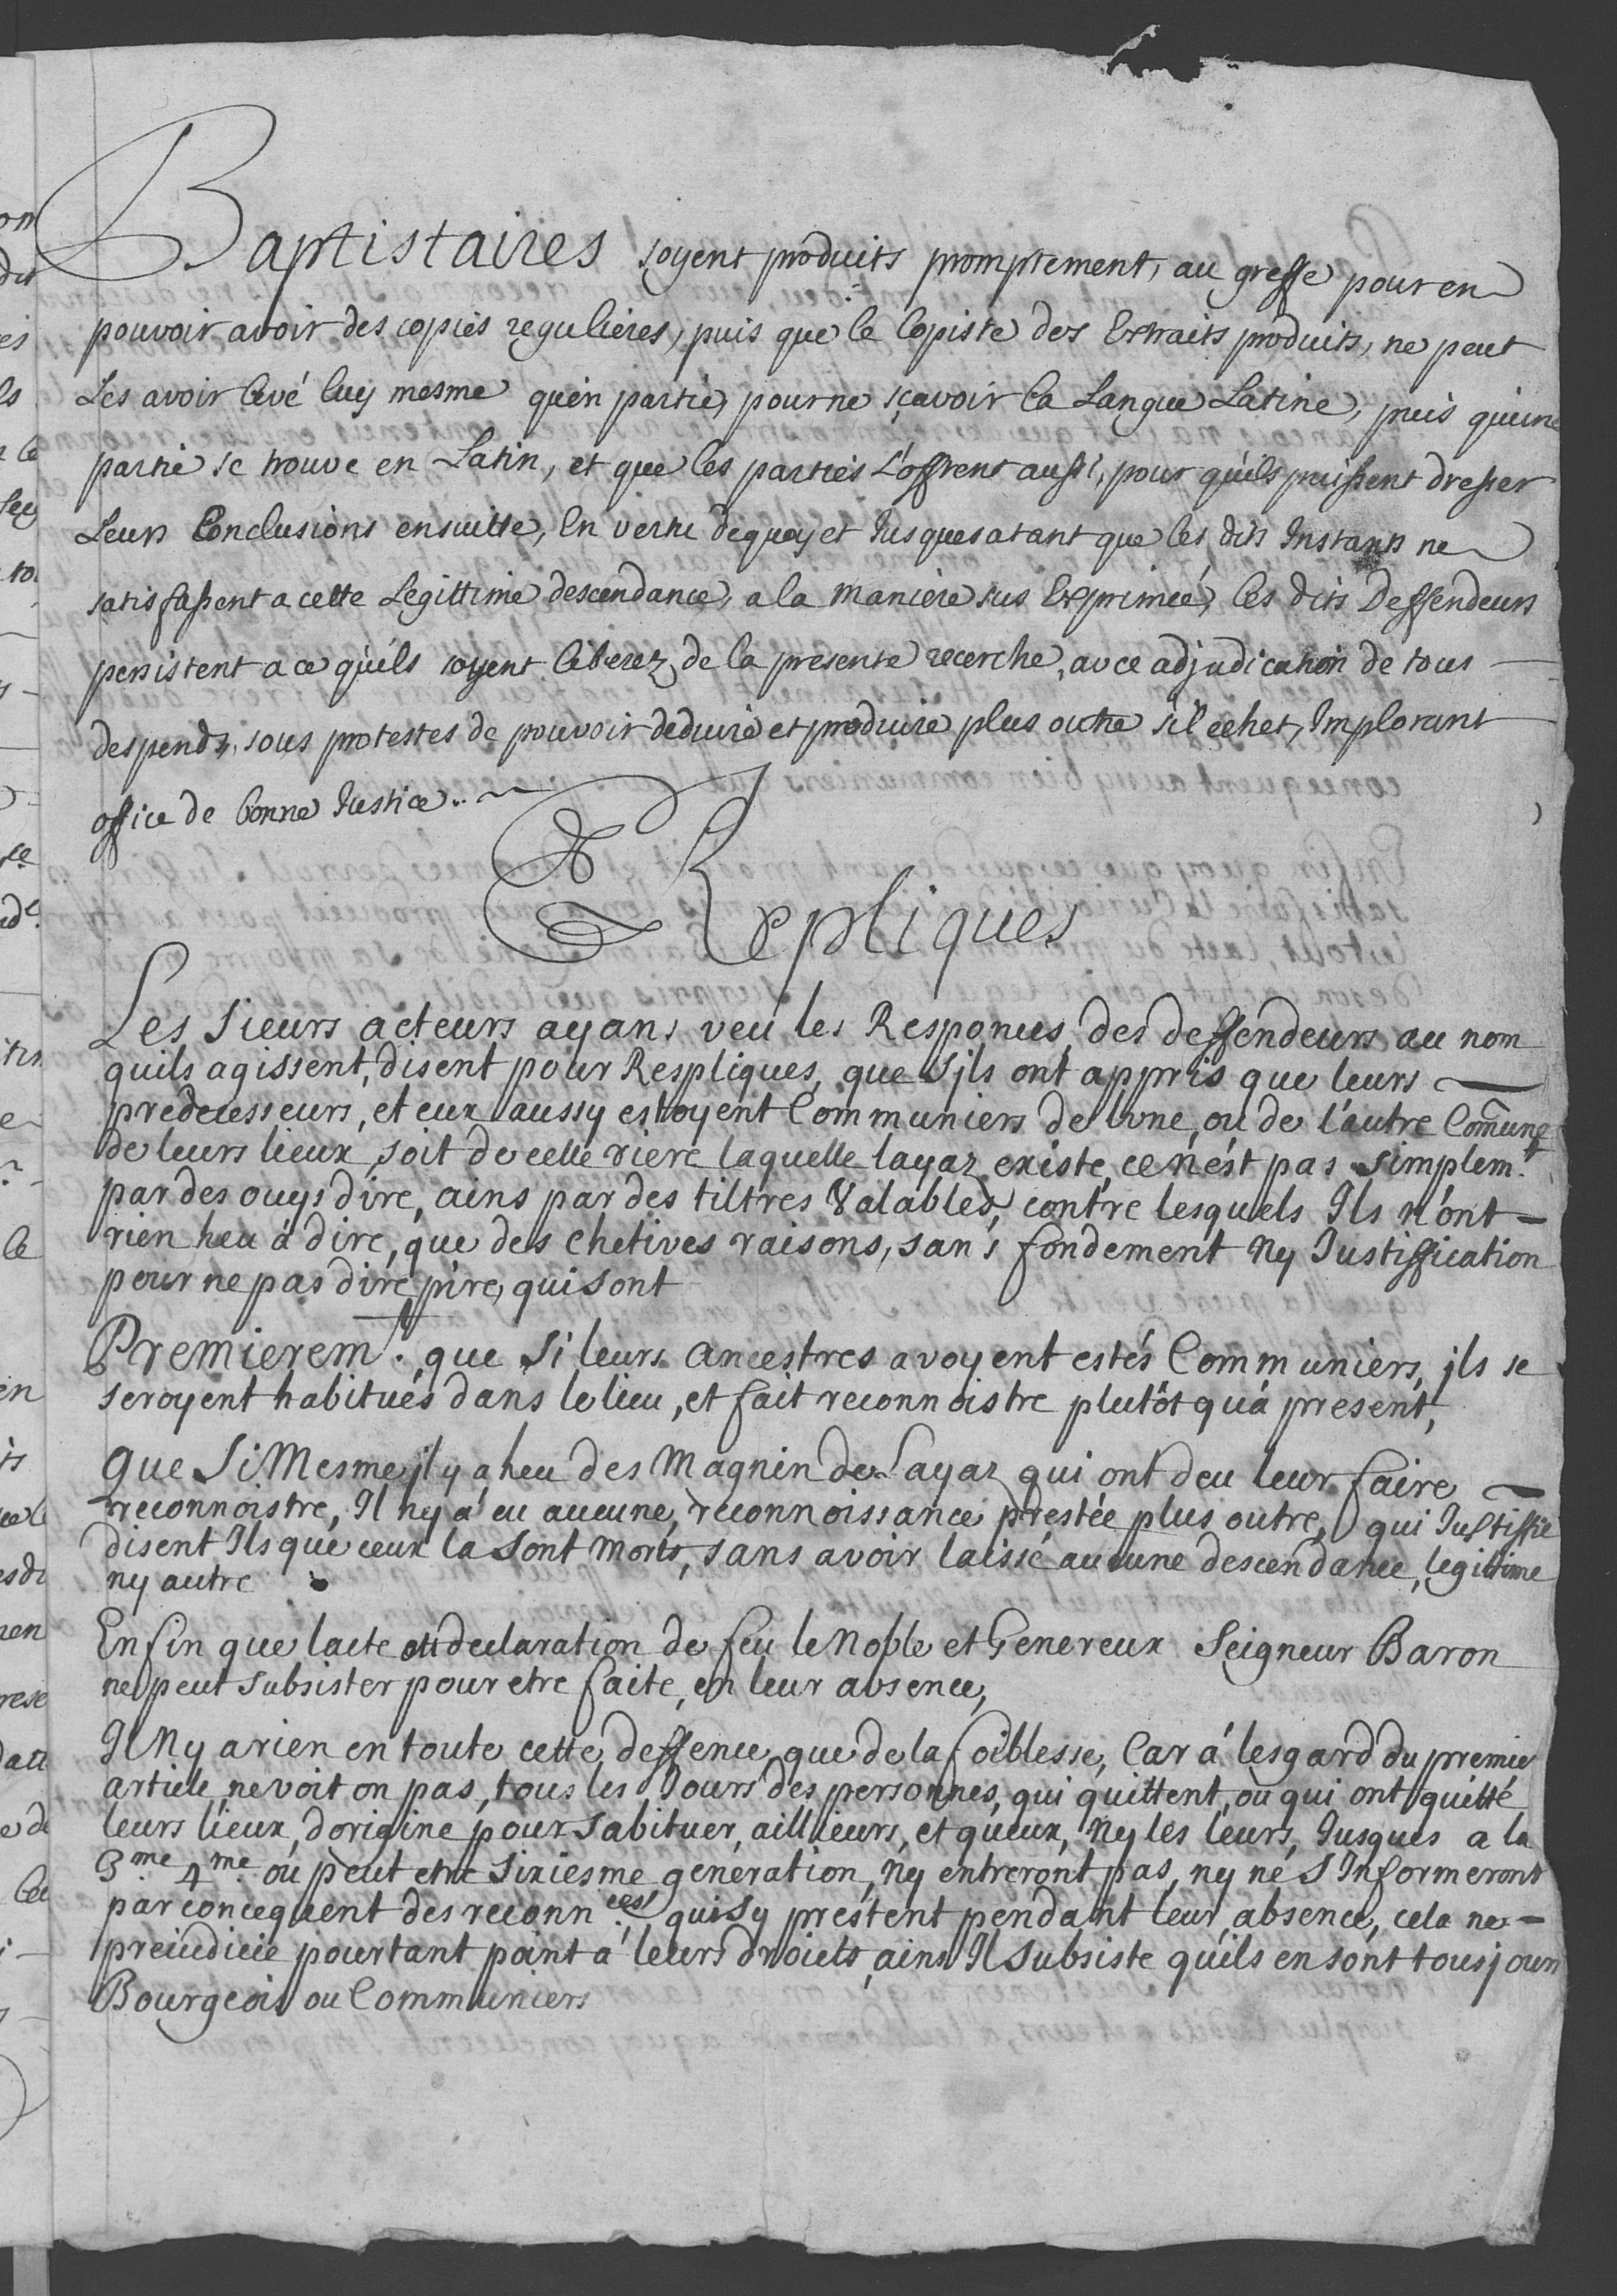 Baptistaires soyent produits promptement, au greffe pour en
pouvoir avoir des copies regulieres, puis que le Copiste des Extraits produits, ne peut
Les avoir levé luy mesme qu'en partie, pour ne sçavoir la Langue Latine, puis qu'une
partie se trouve en Latin, et que les parties L'offrent aussi, pour qu'ils puissent dresser
Leurs Conclusions ensuitte, En vertu dequoy et Jusques a tant que les dits Instants ne
satisfassent a cette Legittime descendance, a la maniere sus Exprimée, les dits Deffendeurs
persistent a ce qu'ils soyent liberez de la presente recerche, avce adjudication de tous
despends, sous protestes de pouvoir deduire et produire plus outre s'il echet, Implorant
office de bonne Justice..
Repliques
Les sieurs acteurs ayans veu les Responces des deffendeurs au nom
quils agissent, disent pour Respliques, que sjls ont appris que leurs
predecesseurs, et eux aussy estoyent Communiers de lune, ou de l'autre Comune
de leurs lieux, soit de celle riere laquelle layaz existe, ce nést pas simplemt.
par des ouys dire, ains par des tiltres Valables, contre lesquels Ils n'ont
rien heu à dire, que des chetives raisons, sans fondement ny Justiffication
pour ne pas dire pire, qui sont
Premieremt. que si leurs ancestres avoyent estés Communiers, jls se
seroyent habitués dans le lieu, et fait reconnoistre plutôt quà present,
Que Si Mesme jl y a heu des Magnin de Layaz qui ont deu leur faire
reconnoistre, Il ny a eu aucune reconnoissance prestée plus outre, qui Justiffie
disent Ils que ceux la sont morts, sans avoir laissé aucune descendance, legittime
ny autre
Enfin que lacte ou declaration de feu le Noble et Genereux Seigneur Baron
ne peut subsister pour etre faite, en leur absence,
Il Ny a rien en toute cette deffence, que de la foiblesse, Car à lesgard du premie
article, ne voit on pas, tous les Jours des personnes, qui quittent, ou qui ont quitté
leurs lieux, dorigine pour sabituer, aillieurs, et queux, Ny les leurs, Jusques a la
3me. 4me. ou peut etre sixiesme generation, Ny entreront pas, ny ne sInformeront
par concequent des reconn.ces qui sy prestent pendant leur absence, cela ne
preiudicie pourtant point à leurs droicts, ains Il subsiste qu'ils en sont tousjours
Bourgeois ou Communiers